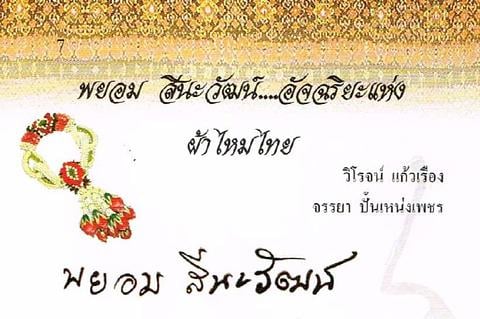 7
พยอม สีนะวัฒน์....อัจฉริยะแห่ง
ผ้าไหมไทย
วิโรจน์ แก้วเรือง
จรรยา ปั้นเหน่งเพชร
พยอม สีนะวัฒน์